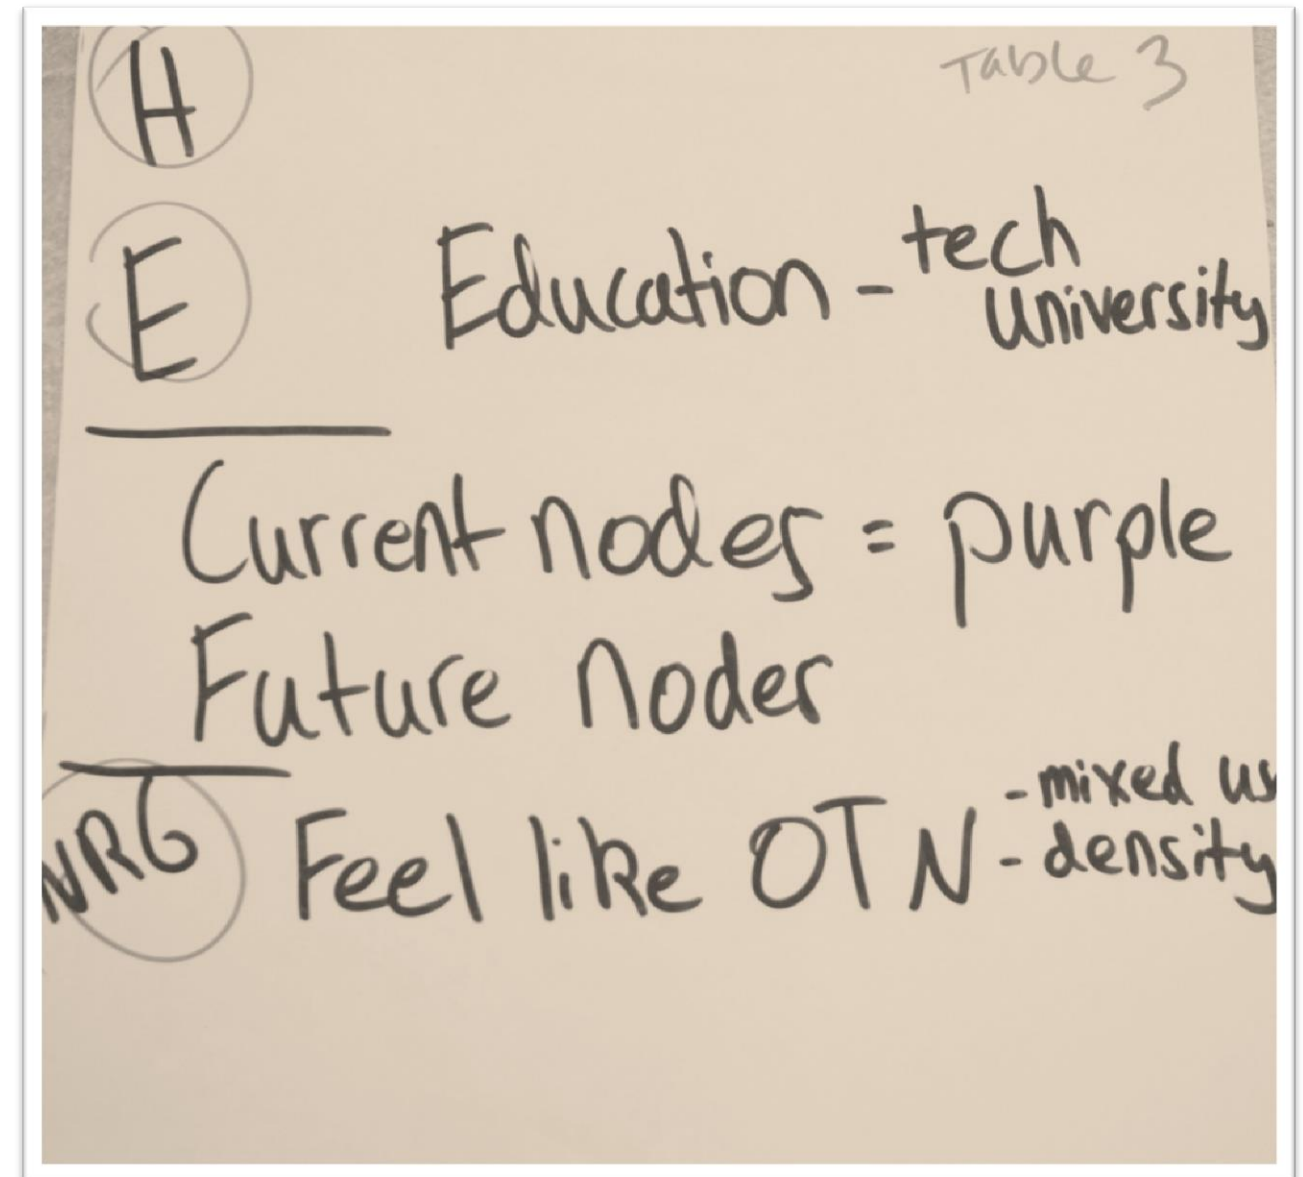 Table 3
H
E Education - tech
university
Current nodes = purple
Future nodes
NRG Feel like OTN - mixed us
- density